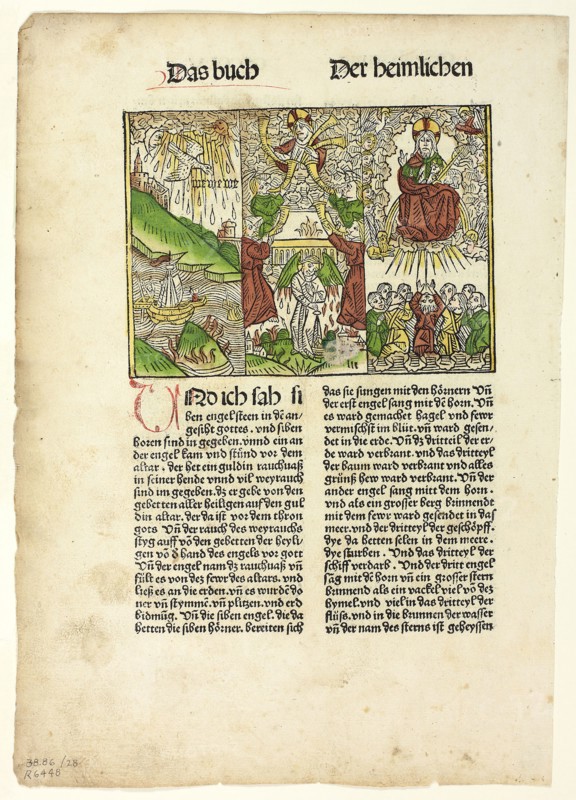 Das buch
Der heimlichen
we we we
VNd ich sah si
ben engel steen in dē an-
gesiht gottes . vnd siben
horen sind in gegeben. vnnd ein an
der engel kam vnd stůnd vor dem
altar . der het ein guldin rauchuaß
in seiner hende vnnd vil weyrauch
sind im gegeben. dz er gebe von den
gebetten aller heiligen auff den gul
din altar. der da ist vor dem thron
gots Vn̄ der rauch des weyrauchs
styg auff vō den gebetten der heyli
gen vō d̕ hand des engels vor gott
Vn̄ der engel nam dz rauchuaß vn̄
fült es von dez fewr des altars. vnd
ließ es an die erden. vn̄ es wurdē do
ner vn̄ stymmē. vn̄ plitzen. vnd erd
bidmūg. Vn̄ die siben engel. die da
hetten die siben hörner. bereiten sich
das sie sungen mit den hörnern Vn̄
der erst engel sang mit dē horn. Vn̄
es ward gemachet hagel vnd fewr
vermischst im blůt. vn̄ ward gesen-
det in die erde. Vn̄ dz dritteil der er-
de ward verbrant. vnd das dritteyl
der baum ward verbrant vnd alles
grünß hew ward verbrant. Vn̄ der
ander engel sang mitt dem horn .
vnd als ein grosser berg brinnendt
mit dem fewr ward gesendet in das
meer. vnd der dritteyl der geschöpff.
dye da hetten selen in dem meere .
dye sturben . Vnd das dritteyl der
schiff verdarb . Vnd der dritt engel
sāg mit dē horn vn̄ ein grosser stern
brinnend als ein vackel viel vō dez
hymel. vnd viel in das dritteyl der
flüss. vnd in die brunnen der wasser
vn̄ der nam des sterns ist geheyssen
38.86/28
R6448